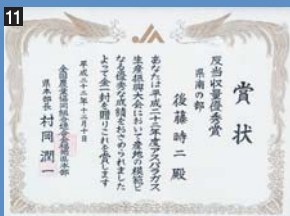 11
JA
賞状
反当収量優秀賞
県南の部
後藤時二 殿
あなたは平成二十二年度アスパラガス
生産振興大会において産地の模範と
なる優秀な成績をおさめられました
よって金一封を贈りこれを賞します
平成二十二年十二月十日
県本部長 村岡潤一